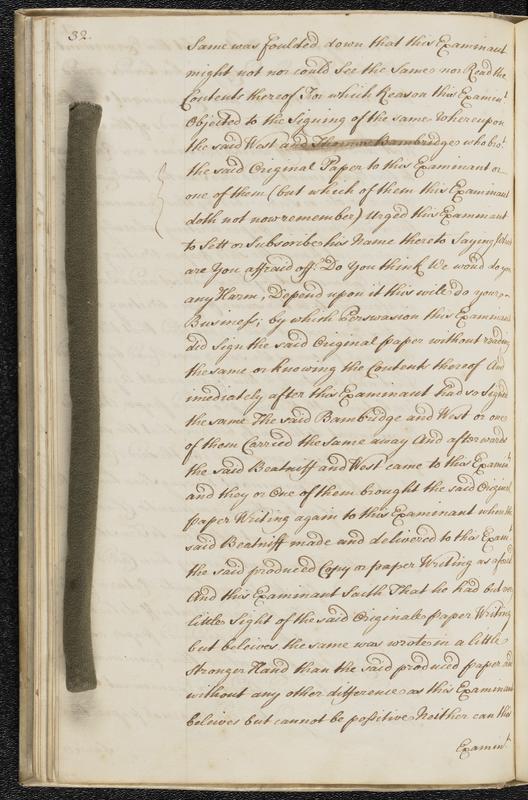 32.
Same was foulded down that this Examinant
might not nor could see the Same nor Read the
Contents thereof For which Reason this Examint
Objected to the Signing of the same whereupon
the said West and Thomas Bambridge who bro.t
the said Original Paper to this Examinant or
one of them (but which of them this Examinant
doth not now remember) Urged this Examinant
to Sett or Subscribe his Name thereto Saying What
are You affraid off. Do You think We would do you
any Harm, Depend upon it this will do your
Business; by which Perswasion this Examinant
did sign the said Original paper without reading
the same or knowing the Contents thereof And
imediately after this Examinant had so Signed
the same The said Bambridge and West or one
of them Carried the same away And afterwards
the said Beatniff and West came to this Examint
and they or One of them brought the said Original
paper Writing again to this Examinant when the
said Beatniff made and delivered to this Examt
the said produced Copy or paper Writing as afsd
And this Examinant Saith That he had but
little Sight of the said Original paper Writing
but beleives the same was wrote in a little
Stronger Hand than the said produced paper
without any other difference as this Examinant
beleives but cannot be possitive Neither can this
Examint